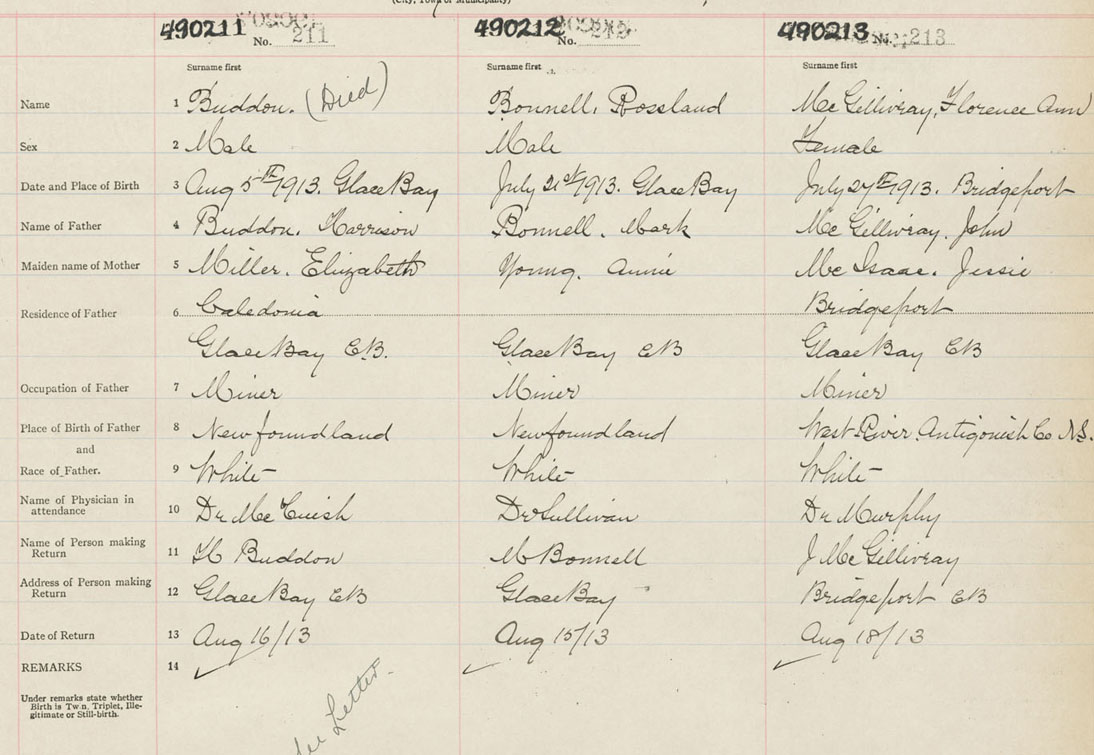 (City, Town or Municipality)
490211 490212 490213
No. 211 No. 212 No. 213
Surname first Surname first Surname first
Name 1 Buddon. (Died) Bonnell, Rossland Mc Gillivray, Florence Ann
Sex 2 Male Male Female
Date and Place of Birth 3 Aug 5th 1913. Glace Bay July 21st 1913. Glace Bay July 27th 1913. Bridgeport
Name of Father 4 Buddon. Harrison Bonnell. Mark Mc Gillivray. John
Maiden name of Mother 5 Miller. Elizabeth Young. Annie Mc Isaac. Jessie
Residence of Father 6 Caledonia Bridgeport
Glace Bay C.B. Glace Bay CB Glace Bay CB
Occupation of Father 7 Miner Miner Miner
Place of Birth of Father 8 Newfoundland Newfoundland West River. Antigonish Co N.S.
and
Race of Father. 9 White White White
Name of Physician in
attendance 10 Dr Mc Cuish Dr Sullivan Dr Murphy
Name of Person making
Return 11 H Buddon M Bonnell J Mc Gillivray
Address of Person making
Return 12 Glace Bay CB Glace Bay Bridgeport CB
Date of Return 13 Aug 16/13 Aug 15/13 Aug 18/13
REMARKS 14
Under remarks state whether
Birth is Twin, Triplet, Ille-
gitimate or Still-birth.
See Letter.